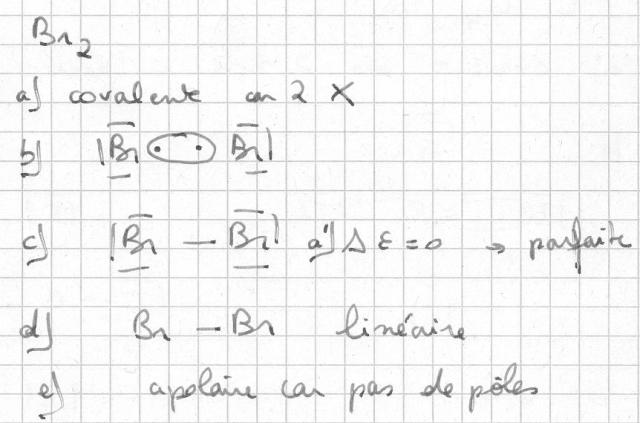 Br₂
a) covalente car 2 X
b) |Br · · Br|
c) |Br — Br| a') Δ ε = 0 → parfaite
d) Br — Br linéaire
e) apolaire car pas de pôles